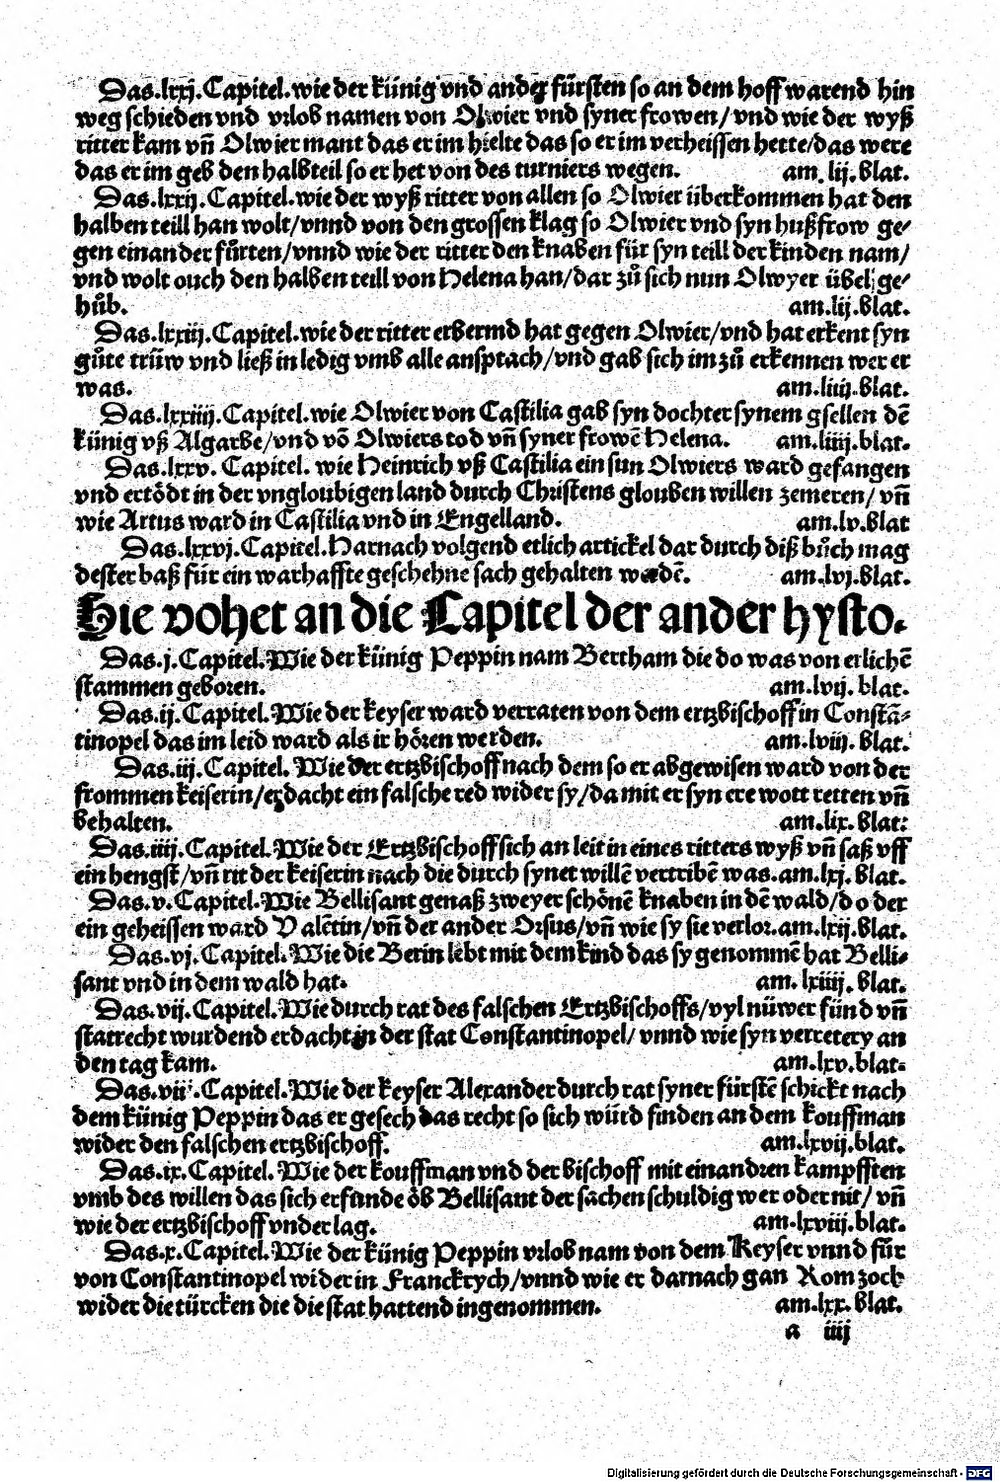 Das.lxxj.Capitel.wie der künig vnd ander fürsten so an dem hoff warend hin
weg schieden vnd vrlob namen von Olwier vnd syner frowen/vnd wie der wyß
ritter kam vñ Olwier mant das er im hielte das so er im verheissen hette/das were
das er im geb den halbteil so er het von des turniers wegen. am.lij.blat.
Das.lxxij.Capitel.wie der wyß ritter von allen so Olwier überkommen hat den
halben teill han wolt/vnnd von den grossen klag so Olwier vnd syn hußfrow ge⸗
gen einander fůrten/vnnd wie der ritter den knaben für syn teill der kinden nam/
vnd wolt ouch den halben teill von Helena han/dar zů sich nun Olwyer übel ge⸗
hůb. am.lij.blat.
Das.lxxiij.Capitel.wie der ritter erbermd hat gegen Olwier/vnd hat erkent syn
gůte trüw vnd ließ in ledig vmb alle ansprach/vnd gab sich im zů erkennen wer er
was. am.liiij.blat.
Das.lxxiiij.Capitel.wie Olwier von Castilia gab syn dochter synem gsellen dē
künig vß Algarbe/vnd vō Olwiers tod vñ syner frowē Helena. am.liiij.blat.
Das.lxxv. Capitel. wie Heinrich vß Castilia ein sun Olwiers ward gefangen
vnd ertödt in der vngloubigen land durch Christens glouben willen zemeren/vñ
wie Artus ward in Castilia vnd in Engelland. am.lv.blat
Das.lxxvj.Capitel.Harnach volgend etlich artickel dar durch diß bůch mag
dester baß für ein warhaffte geschehne sach gehalten werdē. am.lvj.blat.
Hie vohet an die Capitel der ander hysto.
Das.j.Capitel.Wie der künig Peppin nam Bertham die do was von erlichē
stammen geboren. am.lvij.blat.
Das.ij.Capitel.Wie der keyser ward verraten von dem ertzbischoff in Constā⸗
tinopel das im leid ward als ir hören werden. am.lviij.blat.
Das.iij.Capitel.Wie der ertzbischoff nach dem so er abgewisen ward von der
frommen keiserin/erdacht ein falsche red wider sy/da mit er syn ere wott retten vñ
behalten. am.lix.blat:
Das.iiij.Capitel.Wie der Ertzbischoff sich an leit in eines ritters wyß vñ saß vff
ein hengst/vñ rit der keiserin nach die durch synet willē vertribē was.am.lxj.blat.
Das.v.Capitel.Wie Bellisant genaß zweyer schönē knaben in dē wald/do der
ein geheissen ward Valētin/vñ der ander Orsus/vñ wie sy sie verlor.am.lxij.blat.
Das.vj.Capitel.Wie die Berin lebt mit dem kind das sy genommē hat Belli⸗
sant vnd in dem wald hat. am.lxiiij.blat.
Das.vij.Capitel.Wie durch rat des falschen Ertzbischoffs/vyl nüwer fünd vñ
statrecht wurdend erdacht in der stat Constantinopel/vnnd wie syn verretery an
den tag kam. am.lxv.blat⸗
Das.vii.Capitel.Wie der keyser Alexander durch rat syner fürstē schickt nach
dem künig Peppin das er gesech das recht so sich würd finden an dem kouffman
wider den falschen ertzbischoff. am.lxvij.blat.
Das.ix.Capitel.Wie der kouffman vnd der bischoff mit einandren kampfften
vmb des willen das sich erfunde öb Bellisant der sachen schuldig wer oder nit/vñ
wie der ertzbischoff vnder lag. am.lxviij.blat.
Das.x.Capitel.Wie der künig Peppin vrlob nam von dem Keyser vnnd fůr
von Constantinopel wider in Franckrych/vnnd wie er darnach gan Rom zoch
wider die türcken die die stat hattend ingenommen. am.lxx.blat.
a iiij
Digitalisierung gefördert durch die Deutsche Forschungsgemeinschaft - DFG